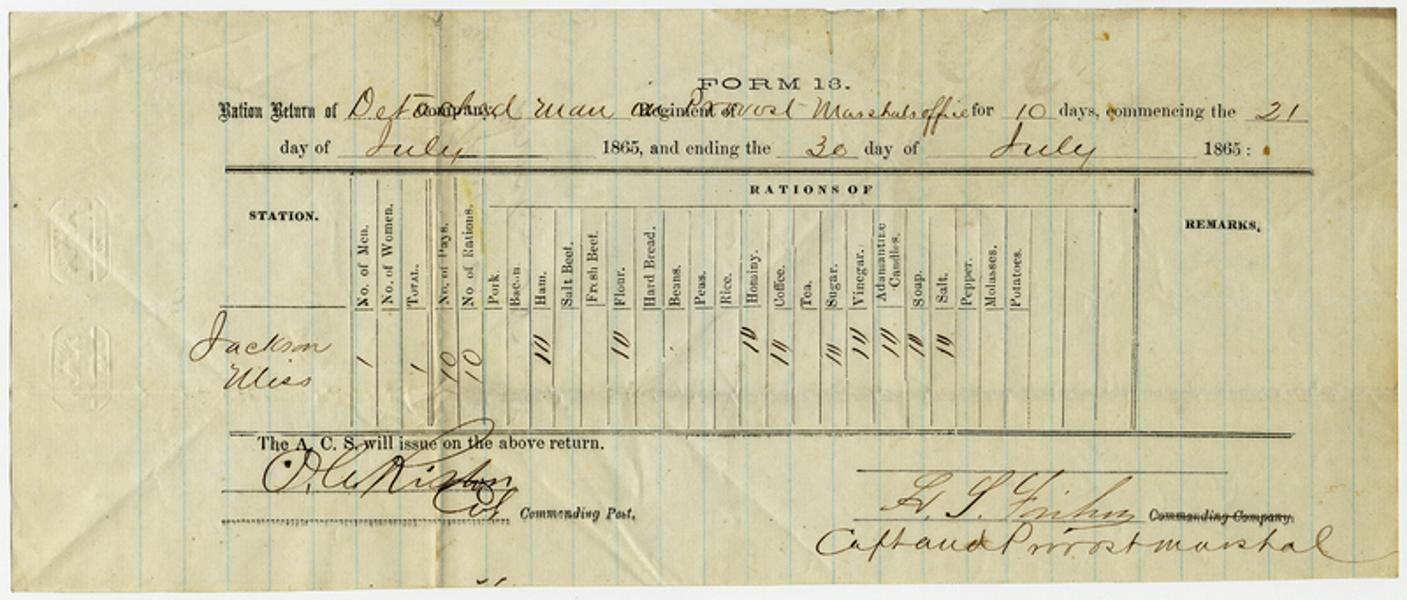 FORM 13.
Ration Return of Detached man in Provost Marshals office for 10 days, commencing the 21
day of July 1865, and ending the 30 day of July 1865:
RATIONS OF
STATION.
No. of Men.
No. of Women.
TOTAL.
No. of Days.
No. of Rations.
Pork.
Bacon.
Ham.
Salt Beef.
Fresh Beef.
Flour.
Hard Bread.
Beans.
Peas.
Rice.
Hominy.
Coffee.
Tea.
Sugar.
Vinegar.
Adamantine Candles.
Soap.
Salt.
Pepper.
Molasses.
Potatoes.
REMARKS.
Jackson 1 1 10 10 10 10 10 10 10 10 10 10 10
Miss
The A. C. S. will issue on the above return.
Col Commanding Post,
Commanding Company.
Capt and Provost marshal